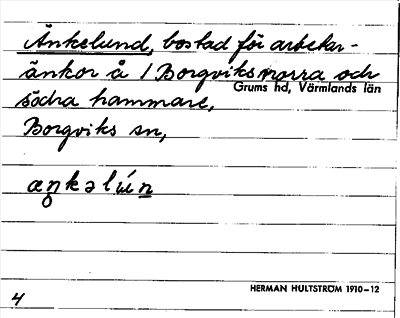 Änkelund, bostad för arbetar-
änkor å / Borgviks norra och
Grums hd, Värmlands län
södra hammare,
Borgviks sn,
æŋ̥kəlún
HERMAN HULTSTRÖM 1910–12
4